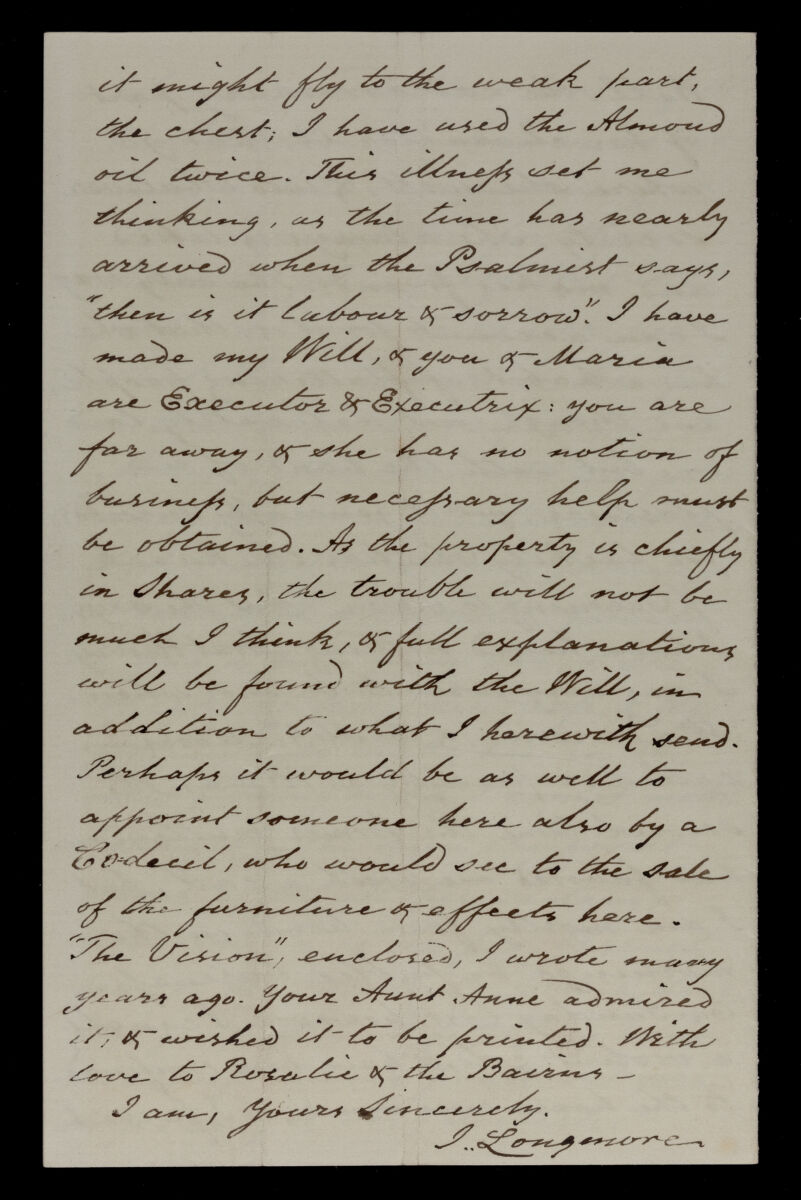 it might fly to the weak part,
the chest; I have used the Almond
oil twice. This illness set me
thinking, as the time has nearly
arrived when the Psalmist says,
"then is it labour & sorrow". I have
made my Will, & you & Maria
are Executor & Executrix: you are
far away, & she has no notion of
business, but necessary help must
be obtained. As the property is chiefly
in Shares, the trouble will not be
much I think, & full explanations
will be found with the Will, in
addition to what I herewith send.
Perhaps it would be as well to
appoint someone here also by a
Codecil, who would see to the sale
of the furniture & effects here.
"The Vision", enclosed, I wrote many
years ago. Your Aunt Anne admired
it, & wished it to be printed. With
love to Rosalie & the Bairns –
I am, Yours Sincerely.
J. Longmore